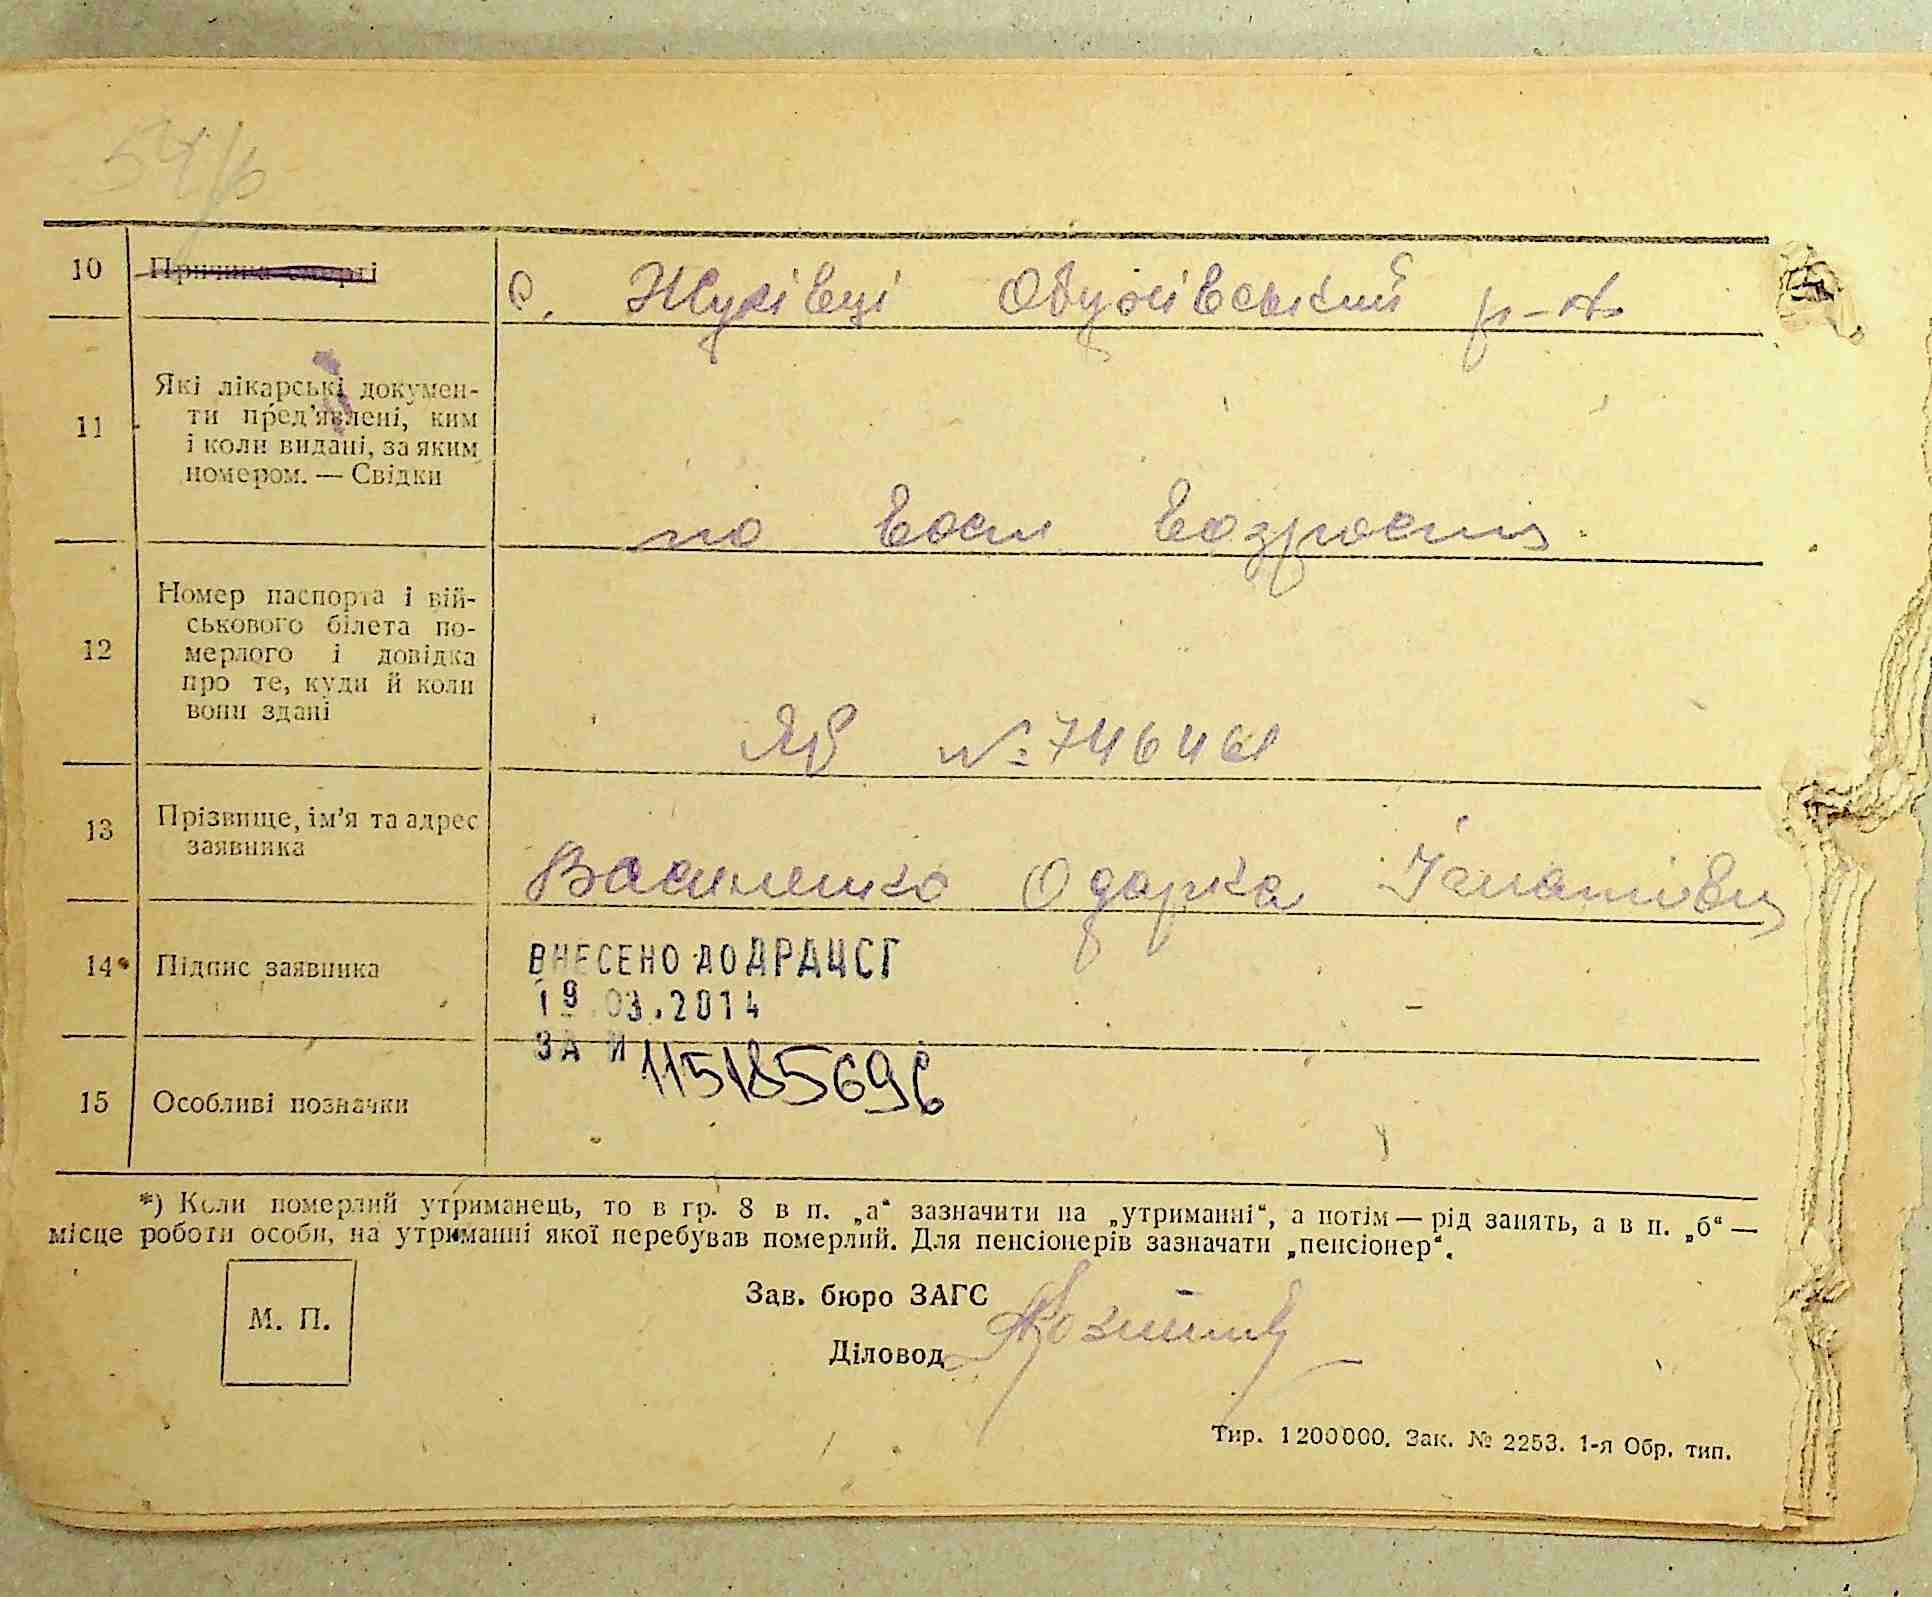 54/6
10 Причина смерті
с. Жуківці Обухівський р-н
11 Які лікарські докумен-
ти пред'явлені, ким
і коли видані, за яким
номером. — Свідки
по возрости
12 Номер паспорта і вій-
ськового білета по-
мерлого і довідка
про те, куди й коли
вони здані
№ 746461
13 Прізвище, ім'я та адрес
заявника
Василенко Одарка
14 Підпис заявника
ВНЕСЕНО ДО ДРАЦСГ
19.03.2014
ЗА № 115185696
15 Особливі позначки
*) Коли померлий утриманець, то в гр. 8 в п. „а“ зазначити на „утриманні“, а потім — рід занять, а в п. „б“ —
місце роботи особи, на утриманні якої перебував померлий. Для пенсіонерів зазначати „пенсіонер“.
М. П.
Зав. бюро ЗАГС
Діловод
Тир. 1200000. Зак. № 2253. 1-я Обр. тип.